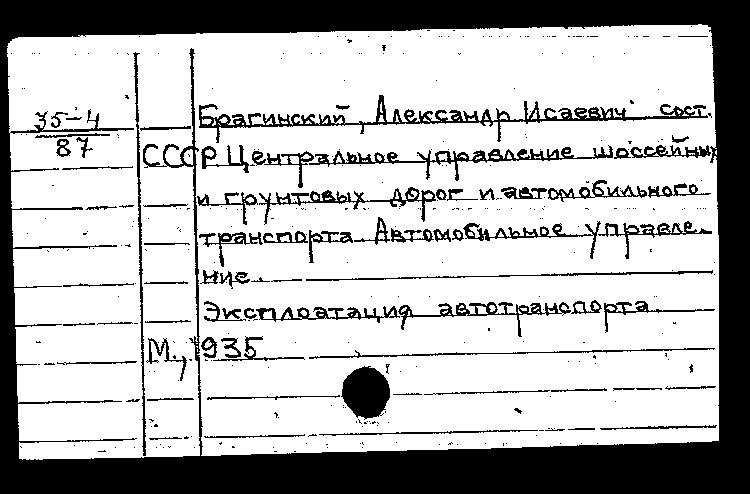 35-4
87
Брагинский, Александр Исаевич сост.
СССР Центральное управление шоссейных
и грунтовых дорог и автомобильного
транспорта. Автомобильное управле-
ние.
Эксплоатация автотранспорта.
М., 1935